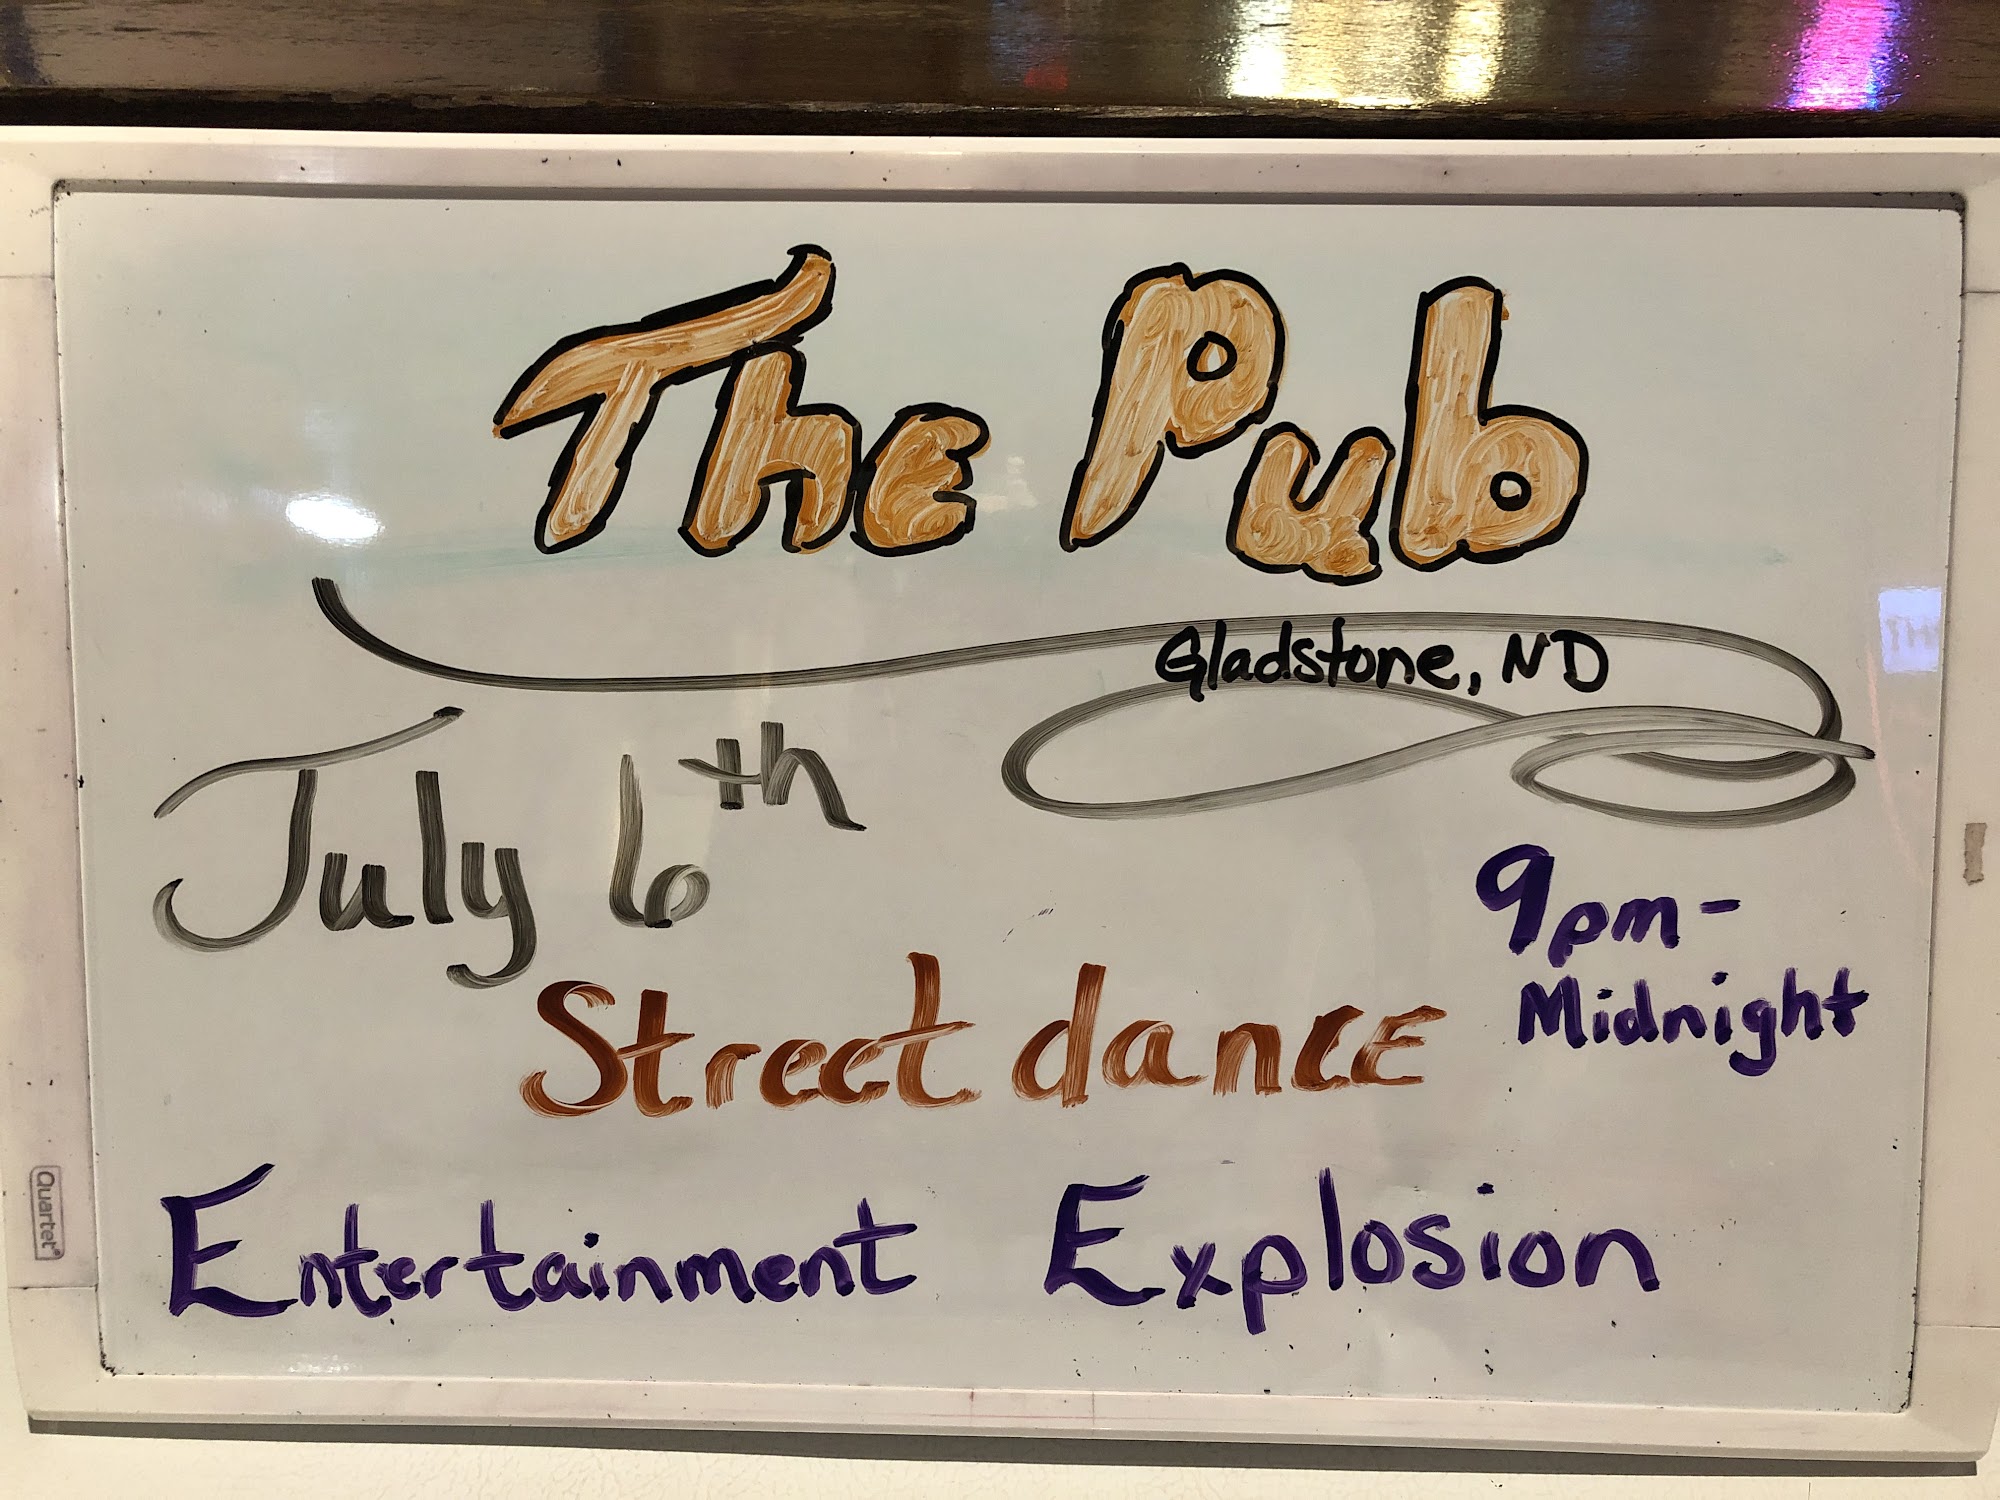 The Pub
Gladstone, ND
July 6th
9pm-
Midnight
Street dance
Entertainment Explosion
Quartet®